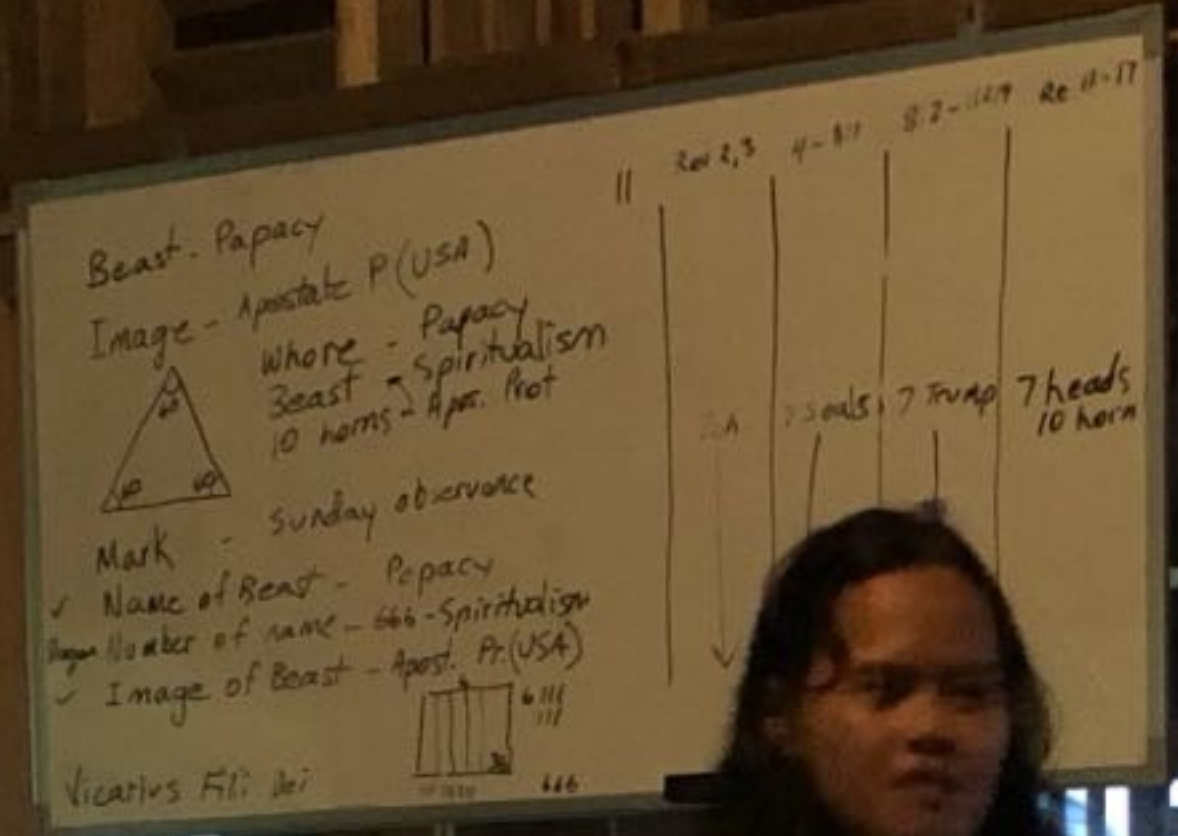 Beast - Papacy
Image - Apostate P (USA)
Whore - Papacy
Beast - Spiritualism
10 horns - Apos. Prot
60
60
60
Mark - Sunday observance
✓ Name of Beast - Papacy
Number of name - 666 - Spiritualism
✓ Image of Beast - Apost. Pr. (USA)
6 111
111
666
Vicarius Fili Dei
11
Rev 2,3
4 -
8:2 -
Re
Seals
7 Trump
7 heads
10 horn